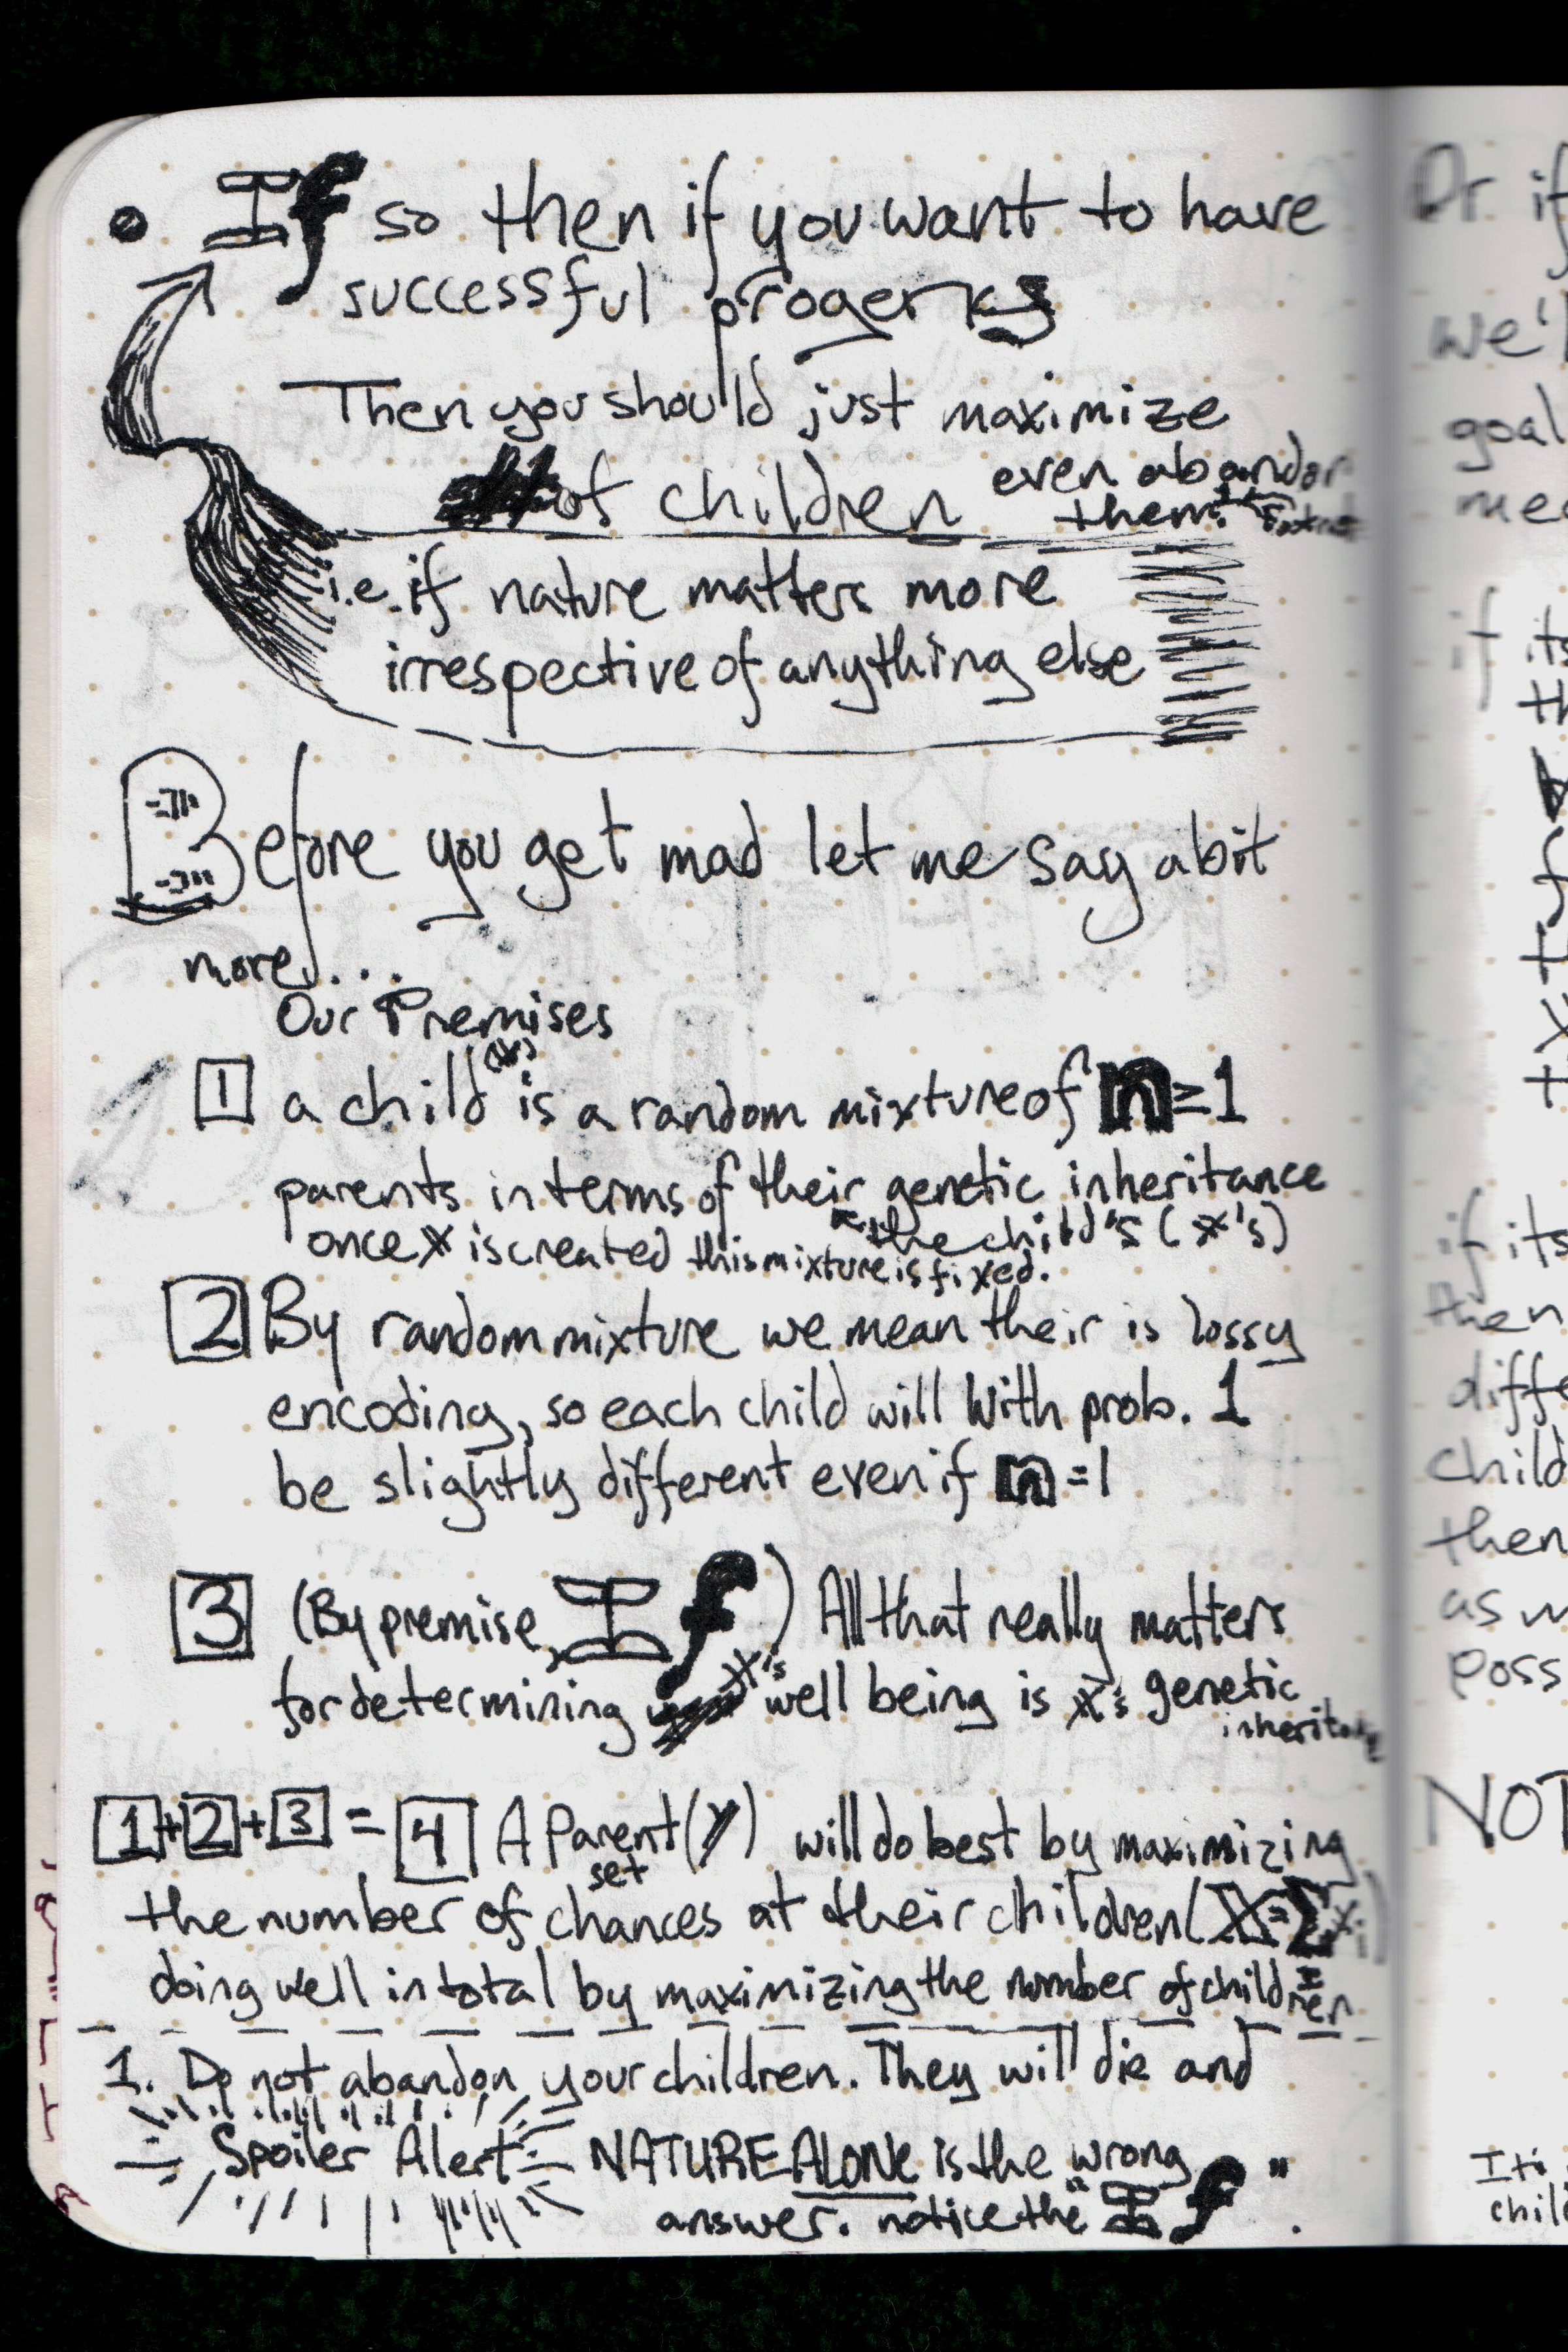 If so then if you want to have
successful progeny
Then you should just maximize
# of children even abandon
them.
i.e. if nature matters more
irrespective of anything else
Before you get mad let me say a bit
more...
Our Premises
1 a child (x) is a random mixture of n≥1
parents in terms of their genetic inheritance
the child's (x's)
once x is created this mixture is fixed.
2 By random mixture we mean their is lossy
encoding, so each child will with prob. 1
be slightly different even if n=1
3 (By premise, If) All that really matters
for determining x's well being is x's genetic
inheritance
1+2+3=4 A Parent (Y) will do best by maximizing
set
the number of chances at their children (X=Σxi)
doing well in total by maximizing the number of children
1. Do not abandon your children. They will die and
Spoiler Alert NATURE ALONE is the wrong
answer. notice the "If".
Or if
we'l
goal
me
if its
th
if its
then
diffe
child
then
as w
poss
NOT
child